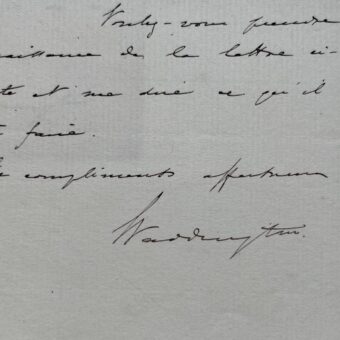 Veuillez-vous prendre
naissance de la lettre ci-
te et me dire ce qu'il
faire.
compliments affectueux
Waddington.